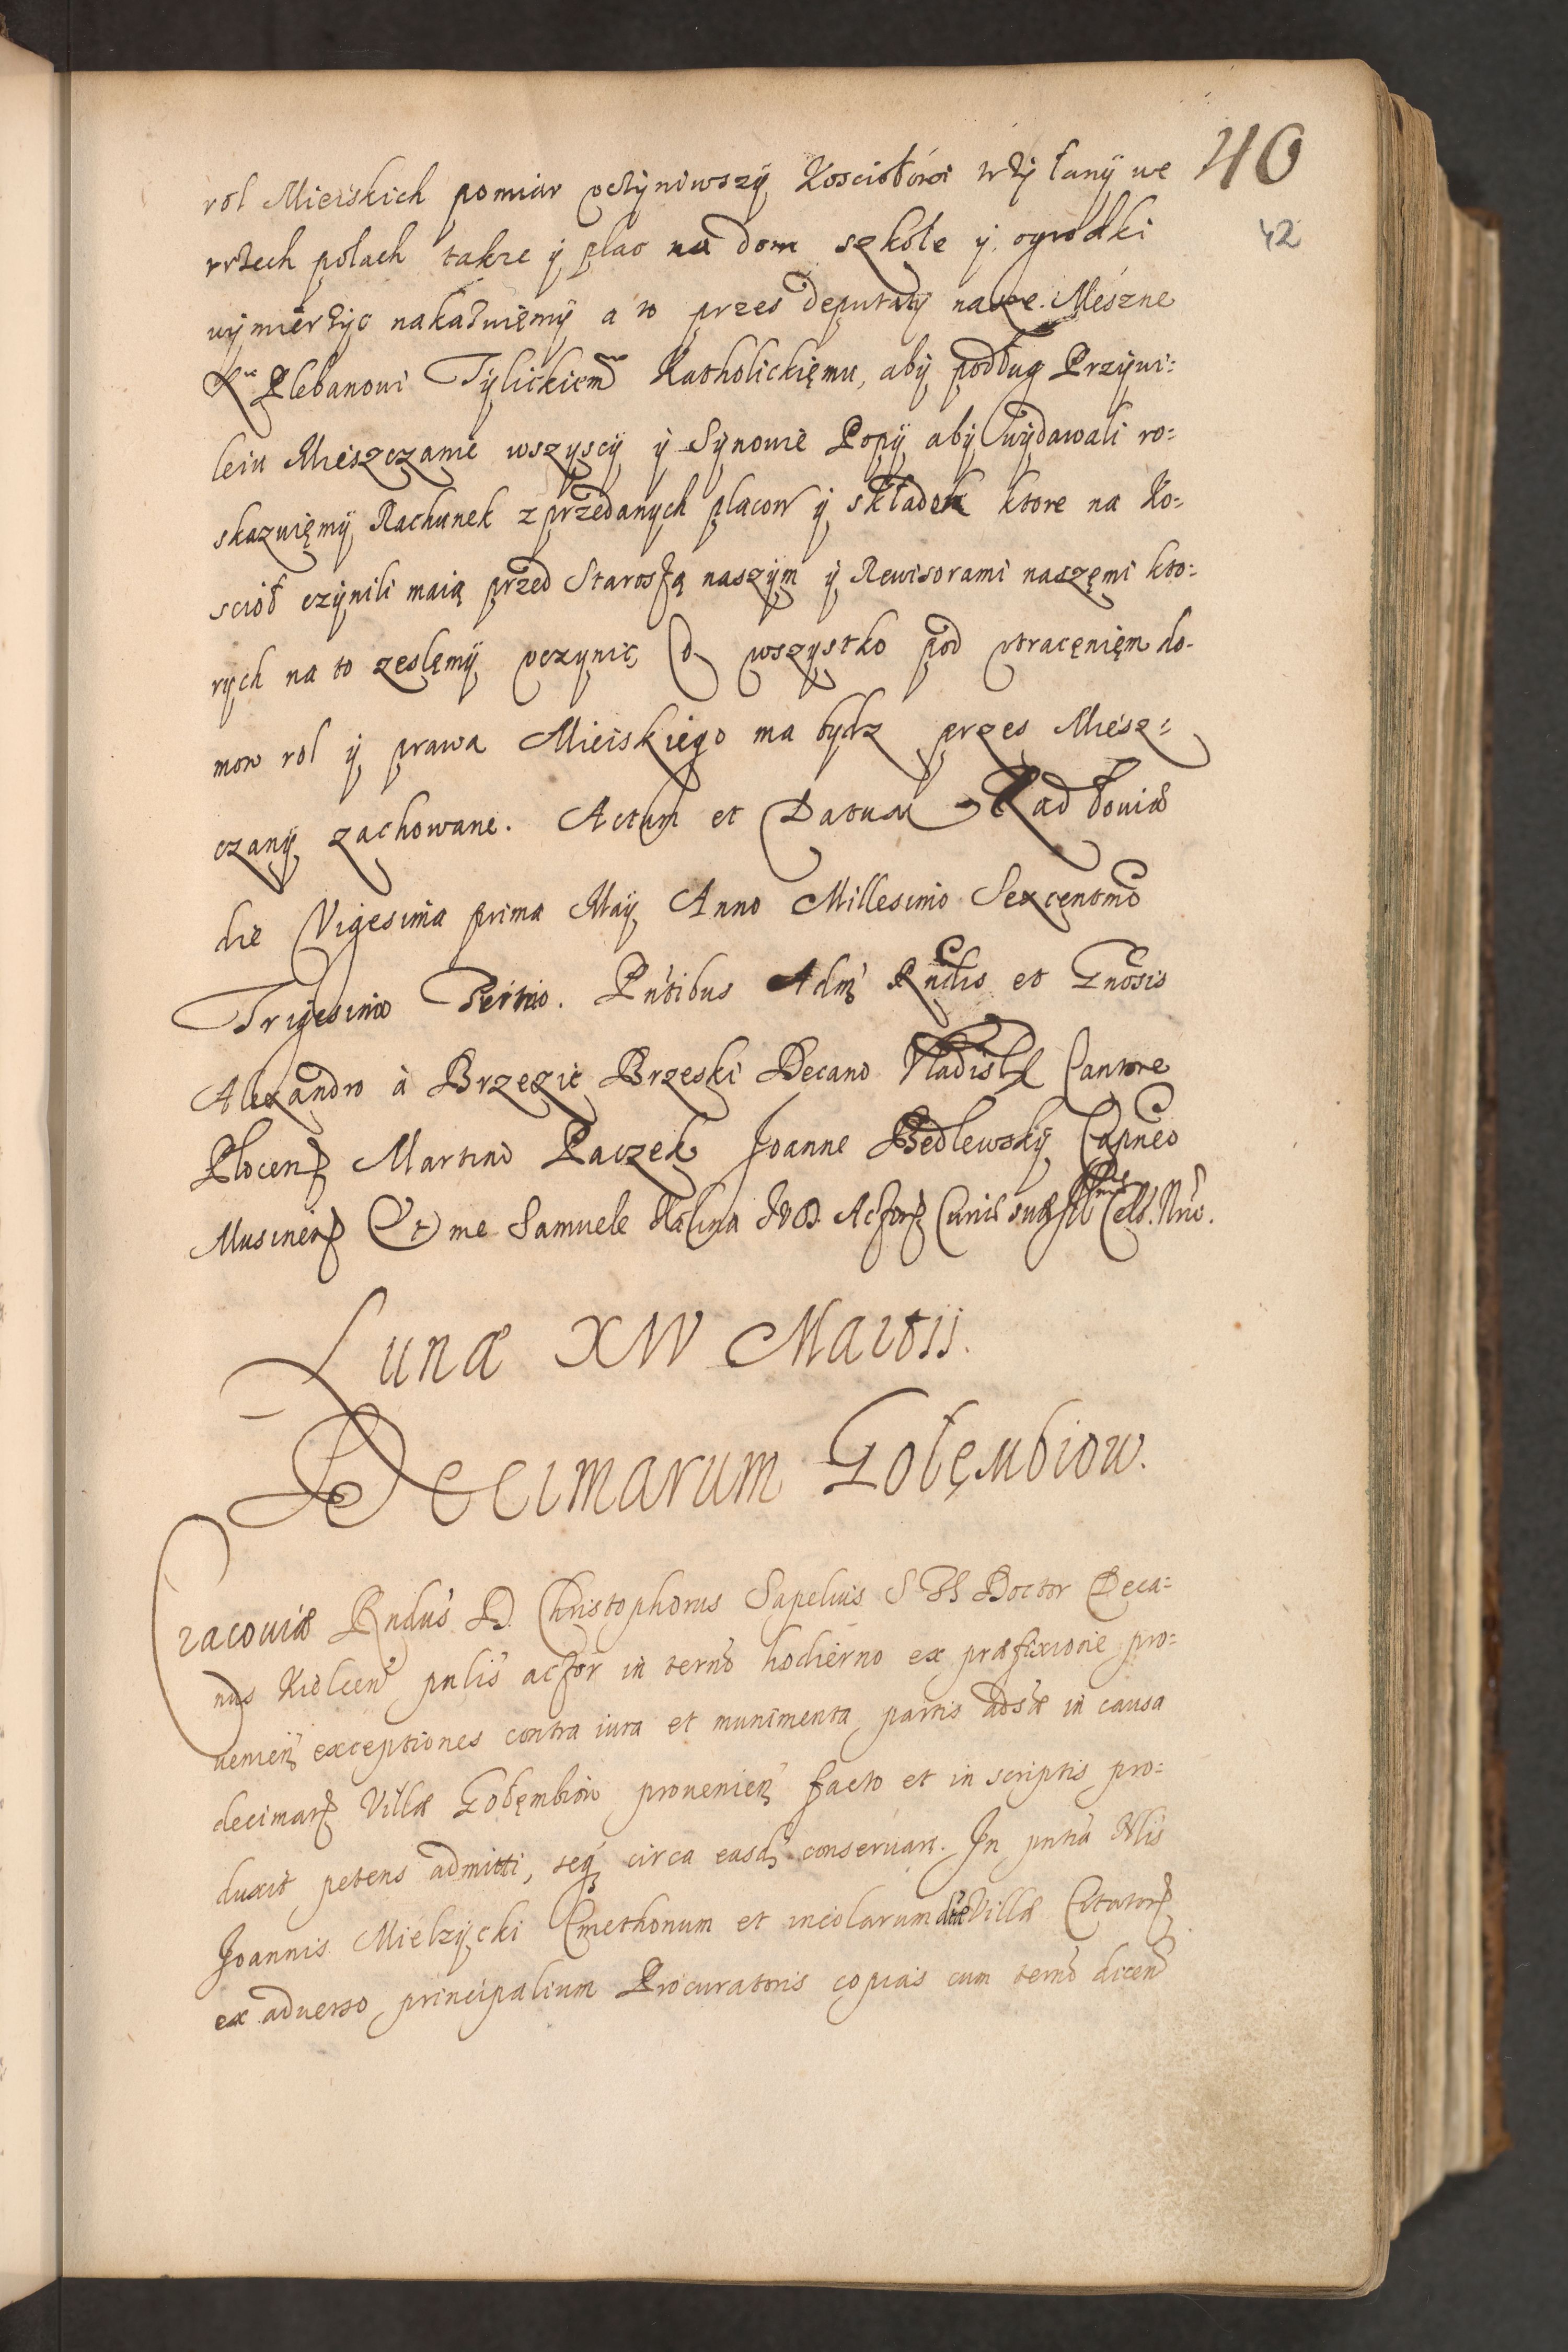 40
42
rol Mieiskich pomiar vczyniwszÿ Kosciołowi trzÿ łanÿ we
trzech polach takze ÿ plac na dom szkołe ÿ ogrodki
wÿmierzÿc nakazuięmÿ a to przes deputatÿ nasze. Meszne
Plebanowi Tÿlickiemu Katholickięmu, abÿ podług Przÿwi:
leiu Mieszczanie wszÿscÿ ÿ Sÿnowie Popÿ abÿ wÿdawali ro:
skazuięmÿ Rachunek z przedanych placow ÿ składek ktore na Ko:
scioł czÿnili maią przed Starostą naszÿm ÿ Rewisorami naszęmi kto:
rÿch na to zeslęmÿ vczynic to wszÿstko pod vtracęnięm do-
mow rol ÿ prawa Mieiskiego ma bÿdz przes Miesz:
czanÿ zachowane. Actum et Datum Radłoviæ
die Vigesima prima Maÿ Anno Millesimo Sexcentmo
Trigesimo Tertio. Pntibus Adm Rndis et Gnosis
Alexandro à Brzezie Brzeski Decano Vladisl Cantore
Plocen Martino Paczek Joanne Bedlewskÿ Capneo
Musinen Et me Samuele Kalina JVD. Actor Curiæ suæ Ill Cels. Nrio.
Lunæ XIV Martii.
Decimarum Gołęmbiow.
Cracoviæ Rndus D. Christophorus Sapelius S Th Doctor Deca:
nus Kielcen pnlis actor in termo hodierno ex præfixione pro:
uenien exceptiones contra iura et munimenta partis adsæ in causa
decimar Villæ Gołęmbiow prouenien facto et in scriptis pro:
duxit petens admitti, seq circa easd conseruari. In pntia Nlis
Joannis Mielzÿcki Cmethonum et incolarum dtæ Villæ Citator
ex aduerso principalium Procuratoris copias cum termo dicen